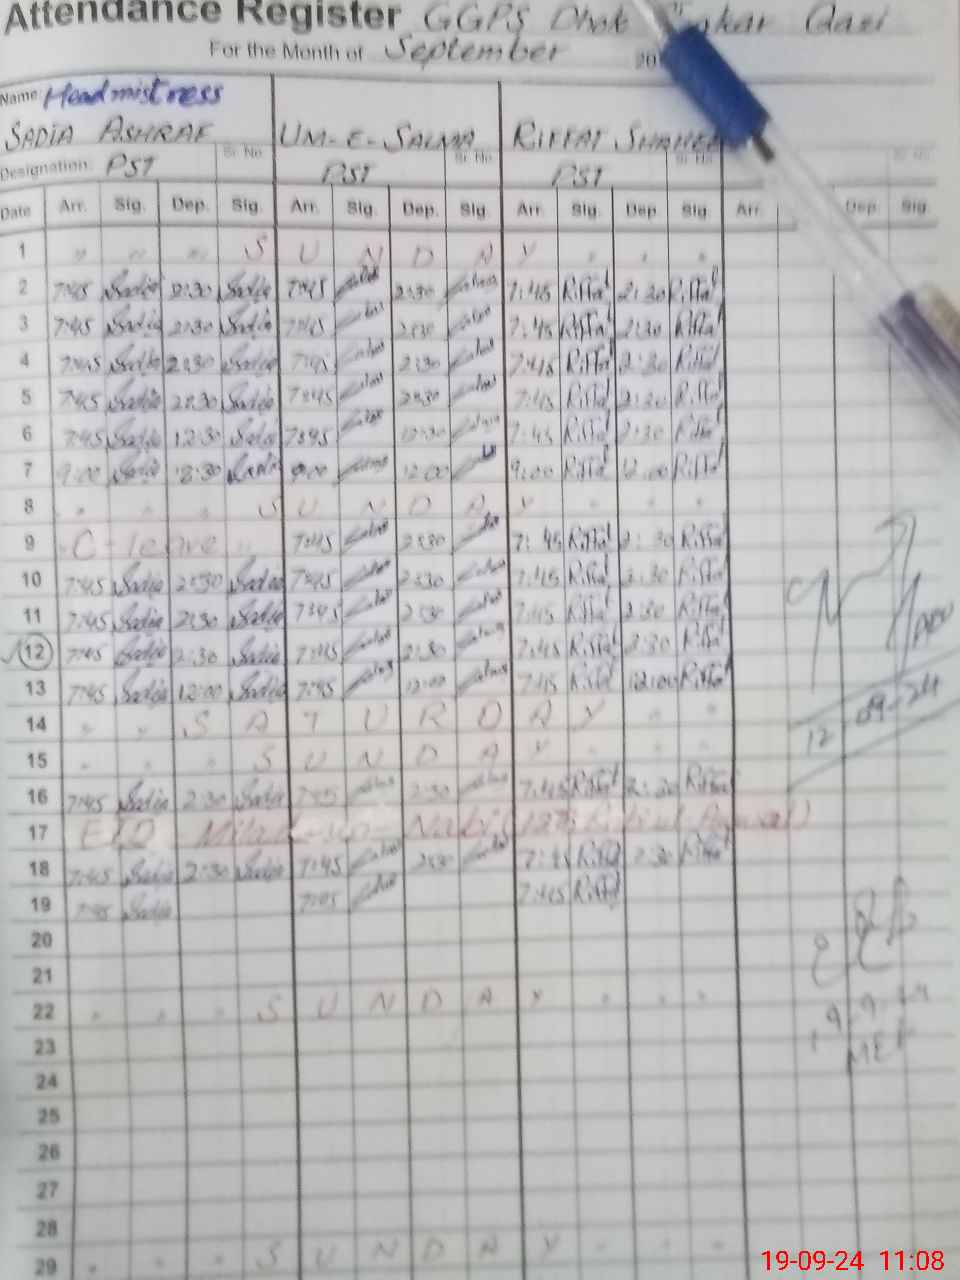 Attendance Register GGPS Dhok Qazi
For the Month of September 20
Name: Headmistress
SADIA ASHRAF UM-E-SALMA RIFFAT SHAHEE
Sr. No Sr. No Sr. No Sr. No
Designation: PST PST PST
Date Arr. Sig. Dep. Sig. Arr. Sig. Dep. Sig. Arr. Sig. Dep. Sig. Arr. Dep. Sig.
1 " " " S U N D A Y " " "
2 7:45 Sadia 2:30 Sadia 7:45 Salma 2:30 Salma 7:45 Riffat 2:30 Riffat
3 7:45 Sadia 2:30 Sadia 7:45 Salma 2:30 Salma 7:45 Riffat 2:30 Riffat
4 7:45 Sadia 2:30 Sadia 7:45 Salma 2:30 Salma 7:45 Riffat 2:30 Riffat
5 7:45 Sadia 2:30 Sadia 7:45 Salma 2:30 Salma 7:45 Riffat 2:30 Riffat
6 7:45 Sadia 12:30 Sadia 7:45 Salma 12:30 Salma 7:45 Riffat 2:30 Riffat
7 9:00 Sadia Sadia 9:00 Salma 12:00 9:00 Riffat 12:00 Riffat
8 " " " S U N D A Y " " "
9 C-leave 7:45 Salma 2:30 Salma 7:45 Riffat 2:30 Riffat
10 7:45 Sadia 2:30 Sadia 7:45 Salma 2:30 Salma 7:45 Riffat 2:30 Riffat
11 7:45 Sadia 2:30 Sadia 7:45 Salma 2:30 Salma 7:45 Riffat 2:30 Riffat
12 7:45 Sadia 2:30 Sadia 7:45 Salma 2:30 Salma 7:45 Riffat 2:30 Riffat
13 7:45 Sadia 12:00 Sadia 7:45 Salma 12:00 Salma 7:45 Riffat 12:00 Riffat
12-09-24
14 " " S A T U R D A Y " "
15 " " " S U N D A Y " " "
16 7:45 Sadia 2:30 Sadia 7:45 Salma 2:30 Salma 7:45 Riffat 2:30 Riffat
17 EID Milad-un-Nabi (12th Rabiul Awwal)
18 7:45 Sadia 2:30 Sadia 7:45 Salma 2:30 Salma 7:45 Riffat 2:30 Riffat
19 7:45 Sadia 7:45 Salma 7:45 Riffat
20
21
22 " " " S U N D A Y " " "
19.9.24
23
24
25
26
27
28
29 " " " S U N D A Y " " "
19-09-24 11:08